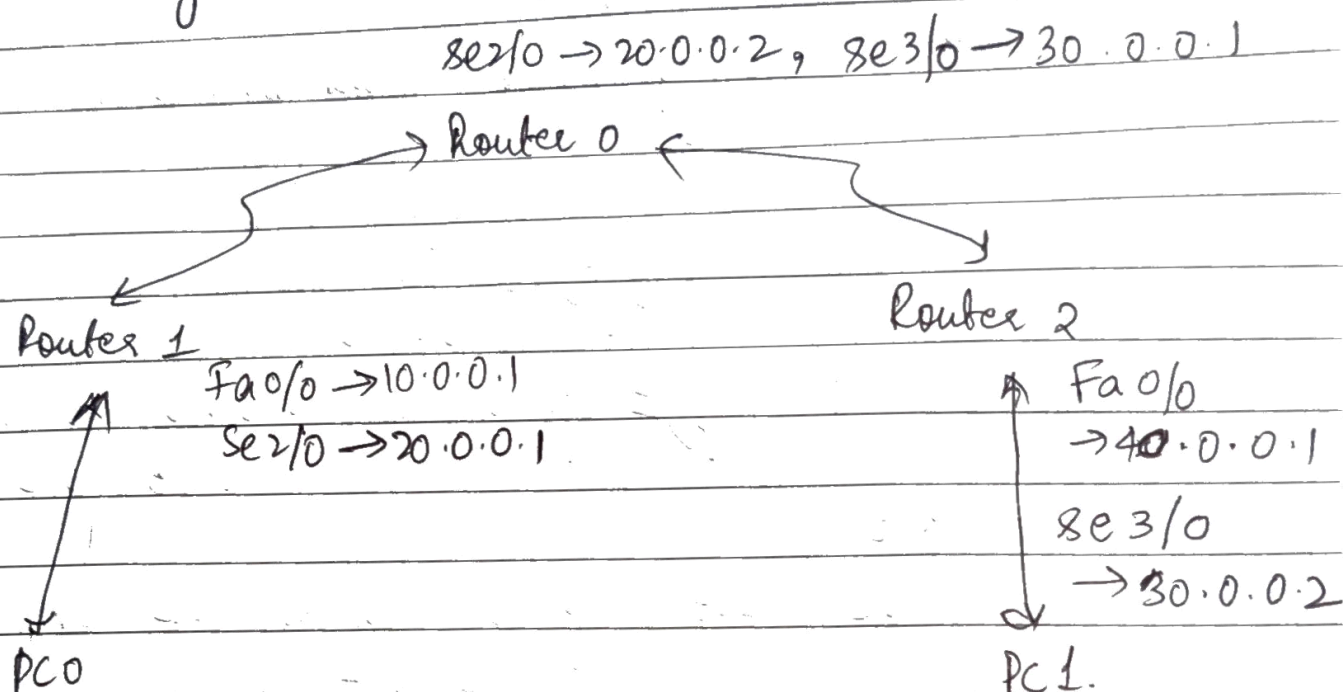 se2/0 → 20.0.0.2, se3/0 → 30.0.0.1
Router 0
Router 1
Router 2
Fa0/0 → 10.0.0.1
Se2/0 → 20.0.0.1
Fa 0/0
→ 40.0.0.1
se 3/0
→ 30.0.0.2
PC0
PC1.